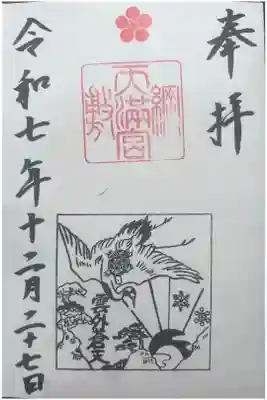 奉拝
天満宮
綱敷
雲外蒼天
令和七年十二月二十七日